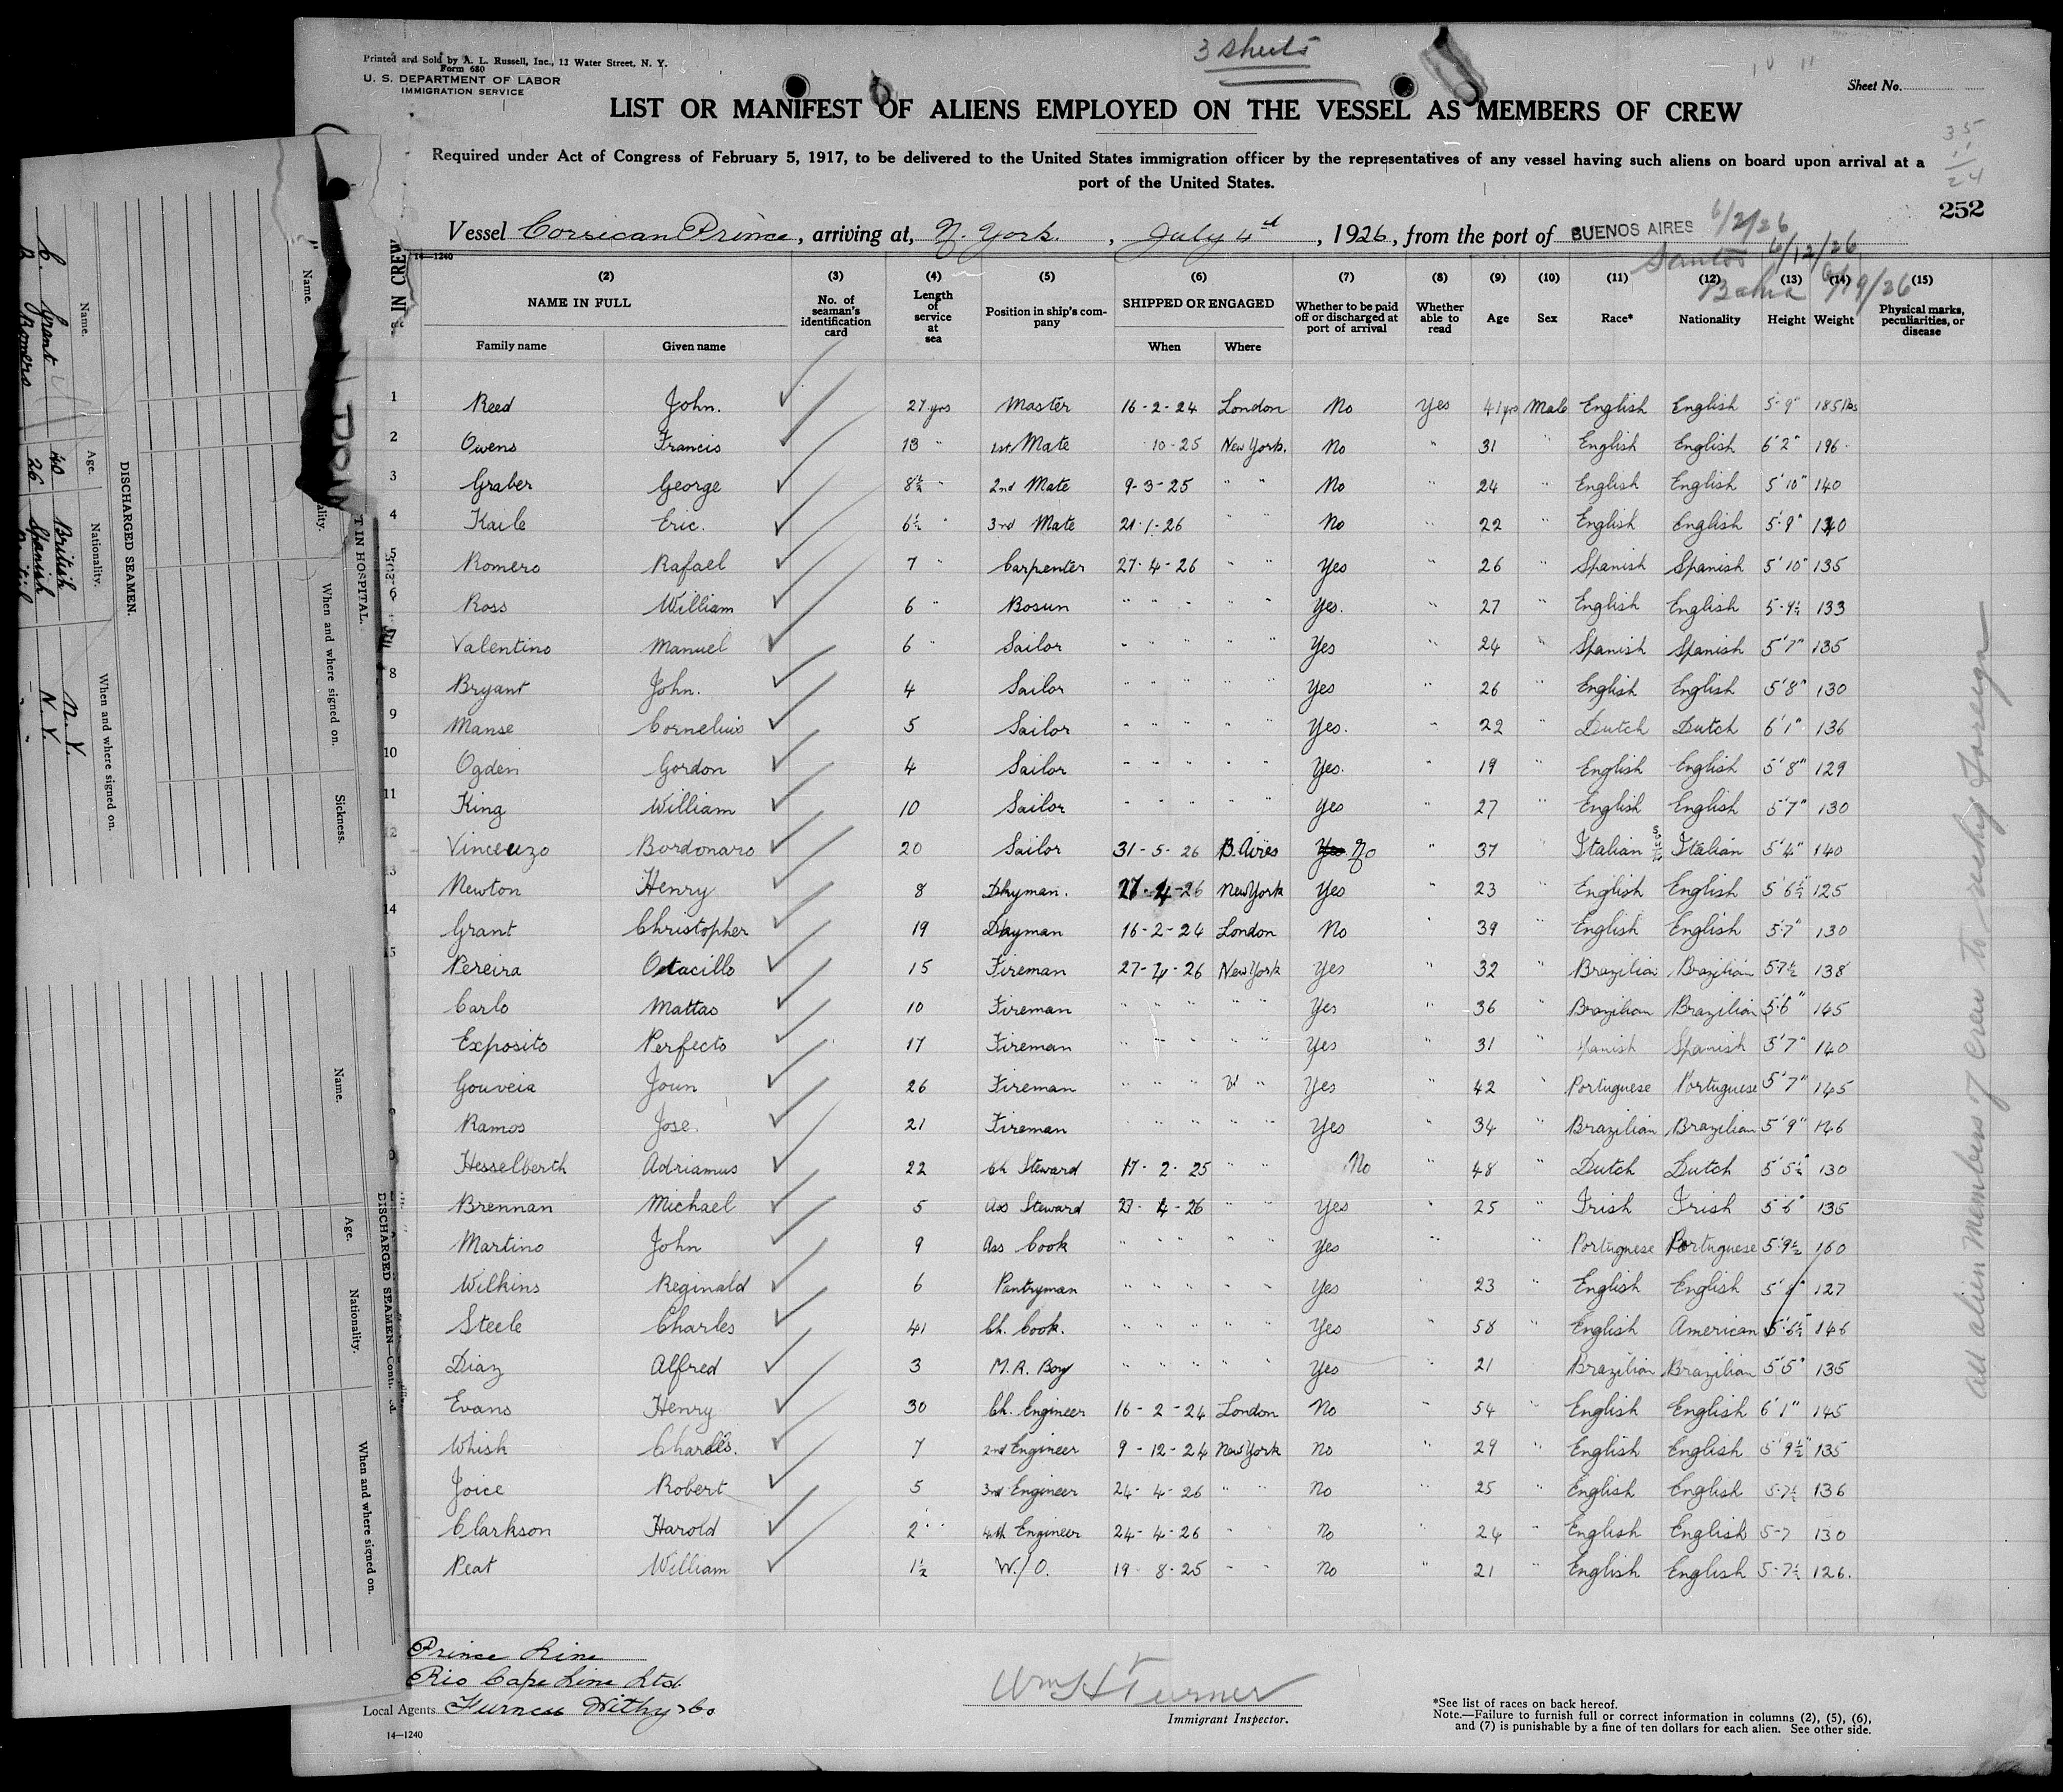 3 sheets
Printed and Sold by A. L. Russell, Inc., 13 Water Street, N. Y.
Form 680
U. S. DEPARTMENT OF LABOR
IMMIGRATION SERVICE
Sheet No.
LIST OR MANIFEST OF ALIENS EMPLOYED ON THE VESSEL AS MEMBERS OF CREW
Required under Act of Congress of February 5, 1917, to be delivered to the United States immigration officer by the representatives of any vessel having such aliens on board upon arrival at a
port of the United States.
35
11
24
252
Vessel Corsican Prince, arriving at, N. York., July 4th, 1926, from the port of BUENOS AIRES 6/2/26
Santos 6/12/26
Bahia 6/19/26
14—1240
(2) (3) (4) (5) (6) (7) (8) (9) (10) (11) (12) (13) (14) (15)
NAME IN FULL No. of seaman's identification card Length of service at sea Position in ship's company SHIPPED OR ENGAGED Whether to be paid off or discharged at port of arrival Whether able to read Age Sex Race* Nationality Height Weight Physical marks, peculiarities, or disease
Family name Given name When Where
1 Reed John. 27 yrs Master 16-2-24 London No Yes 41 yrs Male English English 5-9" 185 lbs
2 Owens Francis 13 " 1st Mate 10-25 New York. No " 31 " English English 6'2" 196
3 Graber George 8½ " 2nd Mate 9-3-25 " " No " 24 " English English 5'10" 140
4 Kaile Eric. 6½ " 3rd Mate 21-1-26 " " No " 22 " English English 5-9" 140
5 Romero Rafael 7 " Carpenter 27-4-26 " " Yes " 26 " Spanish Spanish 5'10" 135
6 Ross William 6 " Bosun " " " " " Yes. " 27 " English English 5-9½ 133
7 Valentino Manuel 6 " Sailor " " " " " Yes " 24 " Spanish Spanish 5'7" 135
8 Bryant John. 4 Sailor " " " " " Yes " 26 " English English 5'8" 130
9 Manse Cornelius 5 Sailor " " " " " Yes. " 22 " Dutch Dutch 6'1" 136
10 Ogden Gordon 4 Sailor " " " " " Yes. " 19 " English English 5'8" 129
11 King William 10 Sailor " " " " " Yes " 27 " English English 5'7" 130
12 Vincenzo Bordonaro 20 Sailor 31-5-26 B. Aires Yes No " 37 " Italian South Italian 5'4" 140
13 Newton Henry 8 Dkyman. 27-4-26 New York Yes " 23 " English English 5'6½" 125
14 Grant Christopher 19 Dayman 16-2-24 London No " 39 " English English 5-7" 130
15 Pereira Otacillo 15 Fireman 27-4-26 New York Yes " 32 " Brazilian Brazilian 5-7½ 138
Carlo Mattas 10 Fireman " " " " " Yes " 36 " Brazilian Brazilian 5-6" 145
Exposito Perfecto 17 Fireman " " " " " Yes " 31 " Spanish Spanish 5'7" 140
Gouveia Joun 26 Fireman " " " " " Yes " 42 " Portuguese Portuguese 5'7" 145
Ramos Jose. 21 Fireman " " " " " Yes " 34 " Brazilian Brazilian 5'9" 146
Hesselberth Adrianus 22 Ch Steward 17-2-25 " " No " 48 " Dutch Dutch 5'5½" 130
Brennan Michael 5 Ass Steward 27-4-26 " " Yes " 25 " Irish Irish 5'6" 135
Martino John 9 Ass Cook " " " " " Yes " " Portuguese Portuguese 5-9½ 160
Wilkins Reginald 6 Pantryman " " " " " Yes " 23 " English English 5'8" 127
Steele Charles 41 Ch. Cook. " " " " " Yes " 58 " English American 5'6½" 146
Diaz Alfred 3 M.R. Boy " " " " " Yes " 21 " Brazilian Brazilian 5'5" 135
Evans Henry 30 Ch. Engineer 16-2-24 London No " 54 " English English 6'1" 145
Whish Charles. 7 2nd Engineer 9-12-24 New York No " 29 " English English 5'9½" 135
Joice Robert 5 3rd Engineer 24-4-26 " " No " 25 " English English 5-7½ 136
Clarkson Harold 2 " 4th Engineer 24-4-26 " " No " 24 " English English 5-7 130
Peat William 1½ W./O. 19-8-25 " " No " 21 " English English 5-7½ 126.
all alien members of crew to reship foreign
Prince Line
Rio Cape Line Ltd.
Local Agents Furness Withy & Co
Wm H Turner
Immigrant Inspector.
*See list of races on back hereof.
Note.—Failure to furnish full or correct information in columns (2), (5), (6),
and (7) is punishable by a fine of ten dollars for each alien. See other side.
14—1240
IN CREW
T IN HOSPITAL.
Name. When and where signed on. Sickness.
DISCHARGED SEAMEN.
Name. Age. Nationality. When and where signed on.
C. Grant 40 British N.Y.
R. Romero 26 Spanish N.Y.
DISCHARGED SEAMEN—Continued.
Name. Age. Nationality. When and where signed on.